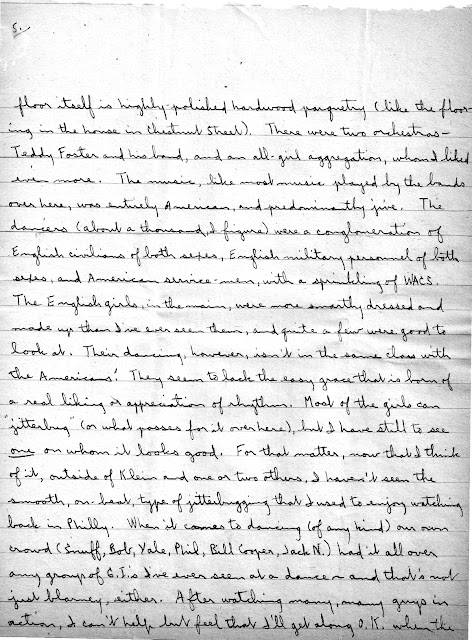 5.
floor itself is highly-polished hardwood parquetry (like the floor-
ing in the house in Chestnut Street). There were two orchestras—
Teddy Foster and his band, and an all-girl aggregation, whom I liked
even more. The music, like most music played by the bands
over here, was entirely American, and predominantly jive. The
dancers (about a thousand, I figure) were a conglomeration of
English civilians of both sexes, English military personnel of both
sexes, and American service-men, with a sprinkling of WACS.
The English girls, in the main, were more smartly dressed and
made up than I've ever seen them, and quite a few were good to
look at. Their dancing, however, isn't in the same class with
the Americans'. They seem to lack the easy grace that is born of
a real liking or appreciation of rhythm. Most of the girls can
"jitterbug" (or what passes for it over here), but I have still to see
one on whom it looks good. For that matter, now that I think
of it, outside of Klein and one or two others, I haven't seen the
smooth, on-beat, type of jitterbugging that I used to enjoy watching
back in Philly. When it comes to dancing (of any kind) our own
crowd (Snuff, Bob, Yale, Phil, Bill Cooper, Jack N.) had it all over
any group of G.I.s I've ever seen at a dance — and that's not
just blarney, either. After watching many, many guys in
action, I can't help but feel that I'll get along O.K. when the